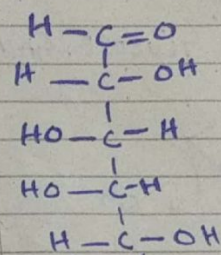 H-C=O
H-C-OH
HO-C-H
HO-C-H
H-C-OH